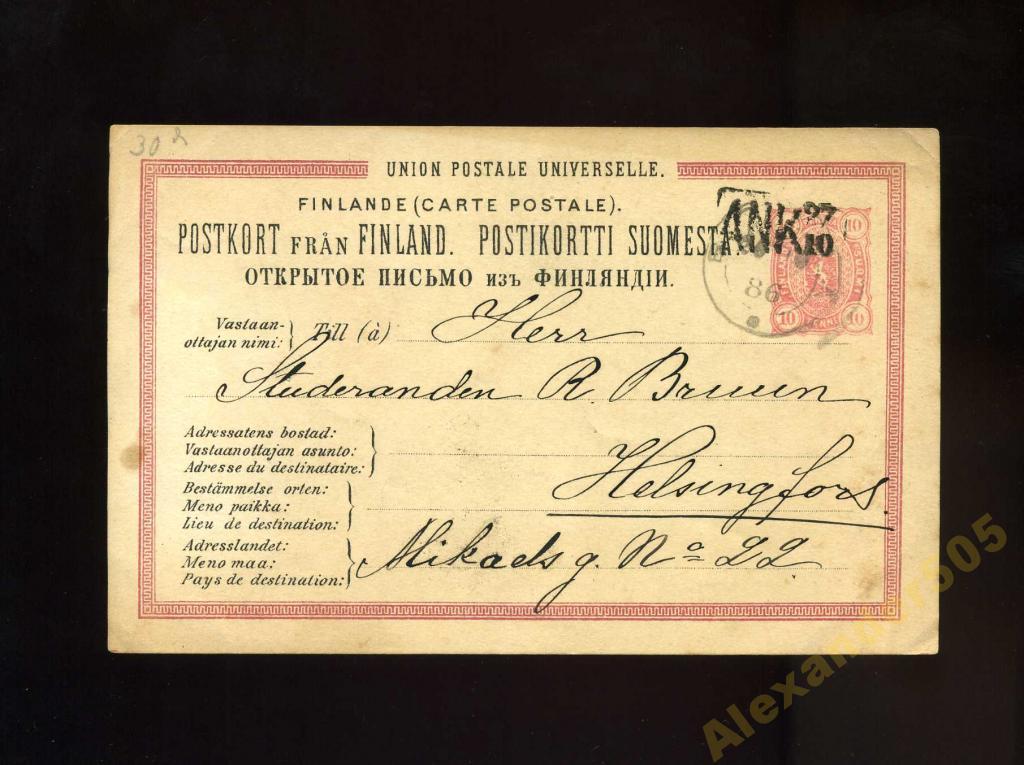 30
UNION POSTALE UNIVERSELLE.
FINLANDE (CARTE POSTALE).
POSTKORT FRÅN FINLAND. POSTIKORTTI SUOMESTA.
ОТКРЫТОЕ ПИСЬМО изъ ФИНЛЯНДІИ.
ANK 27
10
86
10
10
10
Vastaan-
ottajan nimi: Till (à) Herr
Studeranden R. Bruun
Adressatens bostad:
Vastaanottajan asunto:
Adresse du destinataire:
Helsingfors.
Bestämmelse orten:
Meno paikka:
Lieu de destination:
Adresslandet:
Meno maa:
Pays de destination:
Mikaels g. No 22
Alexander505